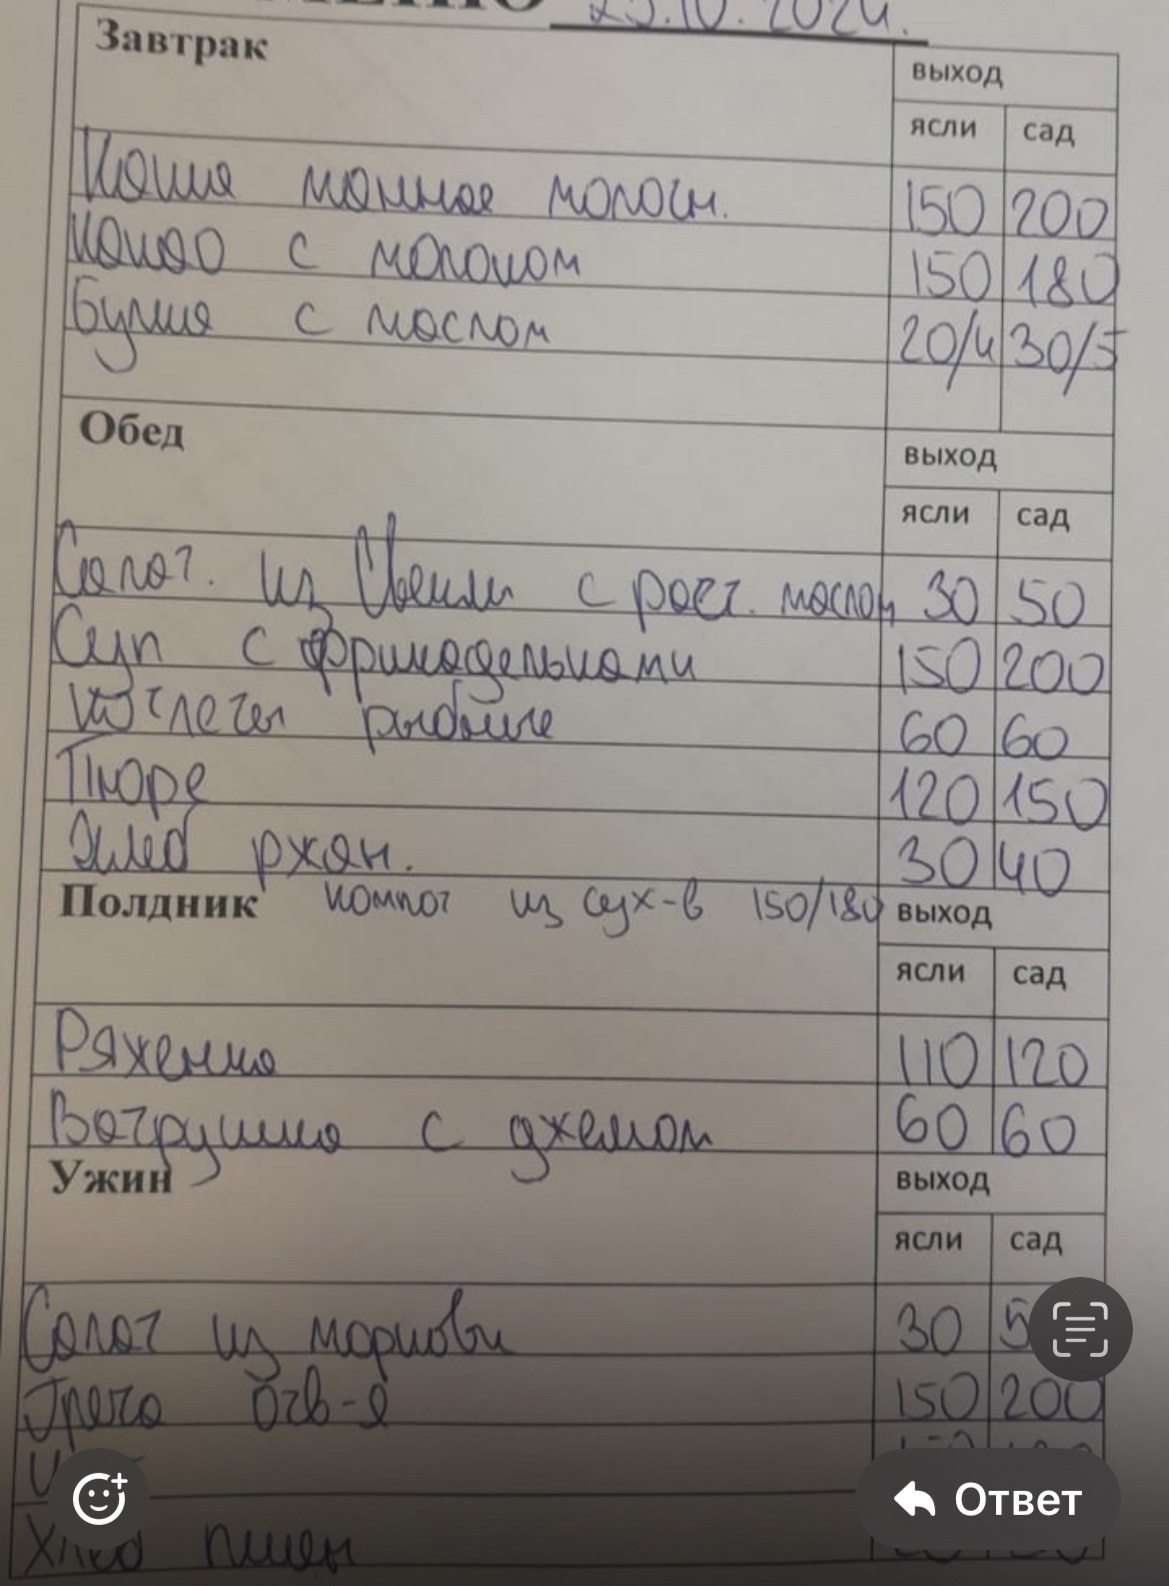 МЕНЮ 25.10.2024.
Завтрак выход
ясли сад
Каша манная молочн. 150 200
Какао с молоком 150 180
Булка с маслом 20/4 30/5
Обед выход
ясли сад
Салат. из Свеклы с раст. маслом 30 50
Суп с фрикадельками 150 200
Котлеты рыбные 60 60
Пюре 120 150
Хлеб ржан. 30 40
Полдник компот из сух-в 150/180 выход
ясли сад
Ряженка 110 120
Ватрушка с джемом 60 60
Ужин выход
ясли сад
Салат из моркови 30
Греча отв-я 150 200
Хлеб пшен
Ответ